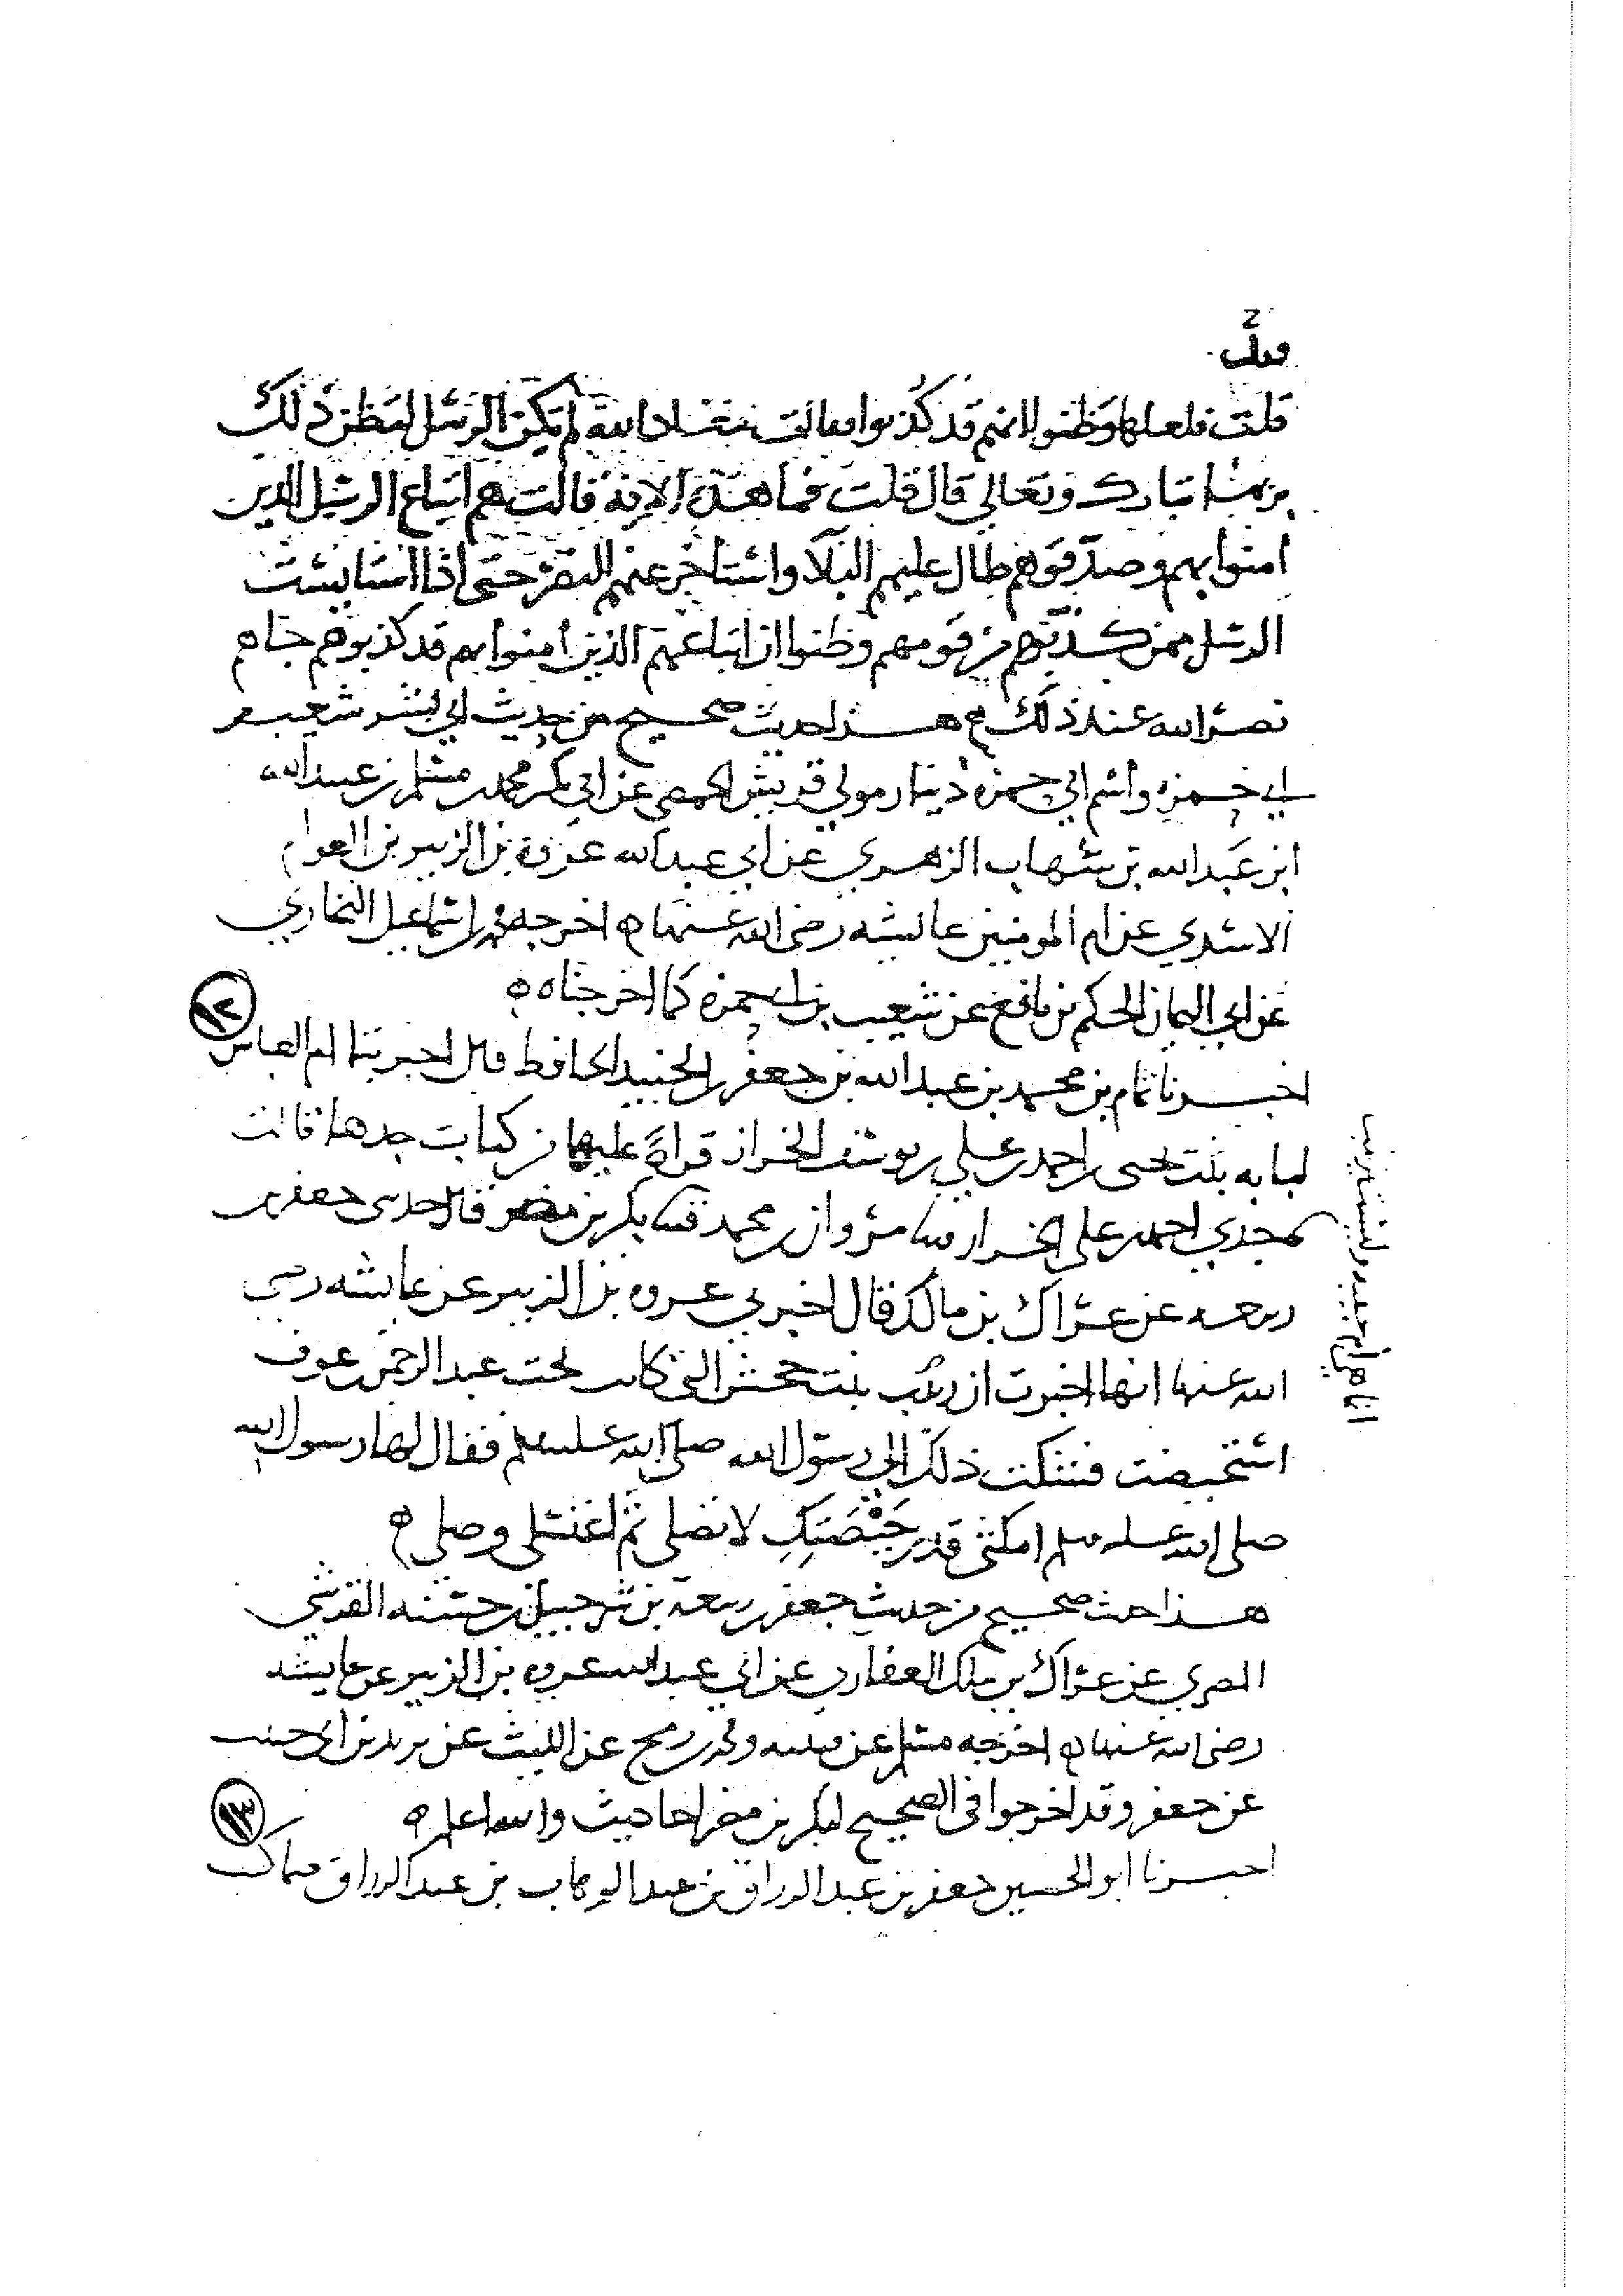 قلت فلعلها وظنوا انهم قد كذبوا فقالت معاذ الله لم تكن الرسل لتظن ذلك
بربها تبارك وتعالى قال قلت فما هذه الاية قالت هم اتباع الرسل الذين
امنوا بهم وصدقوهم طال عليهم البلآ واستاخر عنهم النصر حتى اذا استايست
الرسل ممن كذبهم من قومهم وظنوا ان اتباعهم الذين امنوا بهم قد كذبوهم جاهم
نصر الله عند ذلك هذا حديث صحيح من حديث ابي بشر شعيب بن
ابي حمزه واسم ابي حمزه دينار مولى قريش الحمصي عن ابي بكر محمد بن مسلم بن عبيد الله
ابن عبد الله بن شهاب الزهري عن ابي عبد الله عروة بن الزبير بن العوام
الاسدي عن ام المومنين عايشه رضي الله عنها ه اخرجه محمد بن اسماعيل البخاري
عن ابي اليمان الحكم بن نافع عن شعيب بن ابي حمزه كما اخرجناه ه
١٢
اخبرنا تمام بن محمد بن عبد الله بن جعفر بن الجنيد الحافظ قال اخبرتنا ام العباس
لبابه بنت يحيى بن احمد بن علي بن يوسف الخراز قراة عليها من كتاب جدها قالت
جدي احمد بن علي الخراز مروان بن محمد بكر بن مضر قال حدثني جعفر بن
ربيعه عن عراك بن مالك قال اخبرني عروه بن الزبير عن عايشه رضي
الله عنها انها اخبرت ان زينب بنت جحش التي كانت تحت عبد الرحمن بن عوف
استحيضت فشكت ذلك الى رسول الله صلى الله عليه وسلم فقال لها رسول الله
صلى الله عليه وسلم امكثي قدر حَيْضَتِكِ لا تصلي ثم اغتسلي وصلي ه
هذا حديث صحيح من حديث جعفر بن ربيعة بن شرحبيل بن حسنه القرشي
المصري عن عراك بن ملك الغفاري عن ابي عبد الله عروه بن الزبير عن عايشه
رضي الله عنها ه اخرجه مسلم عن قتيبه ومحمد بن رمح عن الليث عن يزيد بن ابي حبيب
عن جعفر وقد اخرجوا في الصحيح لبكر بن مضر احاديث والله اعلم ه
١٣
اخبرنا ابو الحسين جعفر بن عبد الرزاق بن عبد الوهاب بن عبد الرزاق
انما هي ام حبيبه وليست زينب